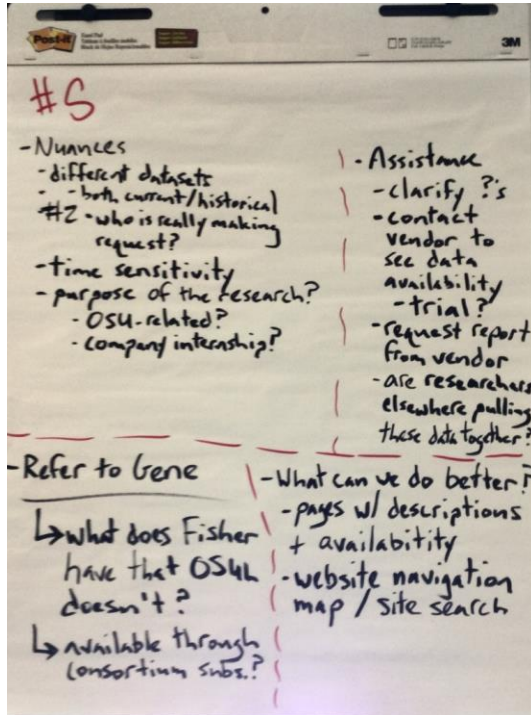 Post-it
3M
#5
- Nuances
- different datasets
- both current/historical
#2 - who is really making
request?
- time sensitivity
- purpose of the research?
- OSU-related?
- company internship?
- Assistance
- clarify ?'s
- contact
vendor to
see data
availability
- trial?
- request report
from vendor
- are researchers
elsewhere pulling
these data together?
- Refer to Gene
↳ what does Fisher
have that OSUL
doesn't?
↳ available through
consortium subs.?
- What can we do better?
- pages w/ descriptions
+ availabitity
- website navigation
map / site search